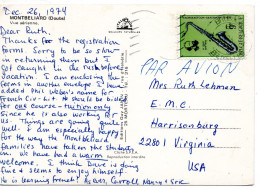 MONTBELIARD (Doubs)
Vue aérienne.
Dec 26, 1974
Dear Ruth,
Thanks for the registration
forms. Sorry to be so slow
in returning them but I
got caught in the rush before
vacation. I am enclosing the
forms in another envelope I have
added this Weber's name for
French Civ-Lit. He should be
for
our course - tuition only
Since he is also working for
us. Things are going quite
well. I am especially happy
for the way the Montbeliard
families have taken the students
in. We have had a warm
welcome. I think Dave is doing
fine & seems to enjoy himself.
He is learning French! Caroll,
PAR AVION
Mrs Ruth Lehman
E. M. C.
Harrisonburg
22801 Virginia
USA